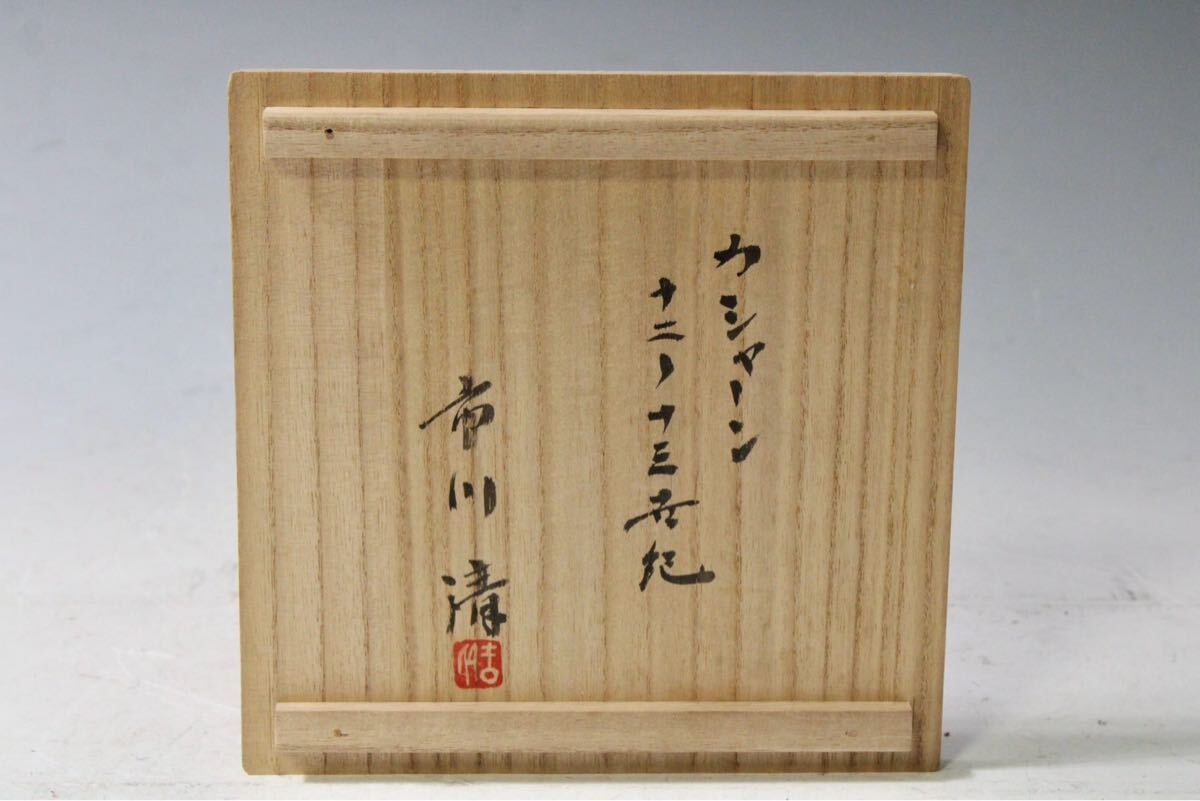 カシャーン
十二〜十三世紀
市川清